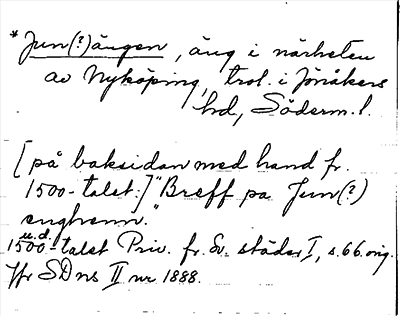 *Jun(?)ängen, äng i närheten
av Nyköping, trol. i Jönåkers
hd, Söderm. l.
[på baksidan med hand fr.
1500-talet.] "Breff pa Jun(?)
enghenn."
u.d.
1500-talet Priv. fr. Sv. städer I, s. 66. orig.
Jfr SD ns II nr 1888.